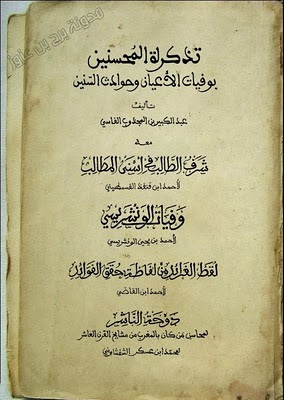 مدونة برج بن عزوز
تذكرة المحسنين
بوفيات الأعيان وحوادث السنين
تأليف
عبد الكبير بن المجذوب الفاسي
معه
شرف الطالب في أسنى المطالب
لأحمد ابن قنفذ القسمطيني
وفيات الونشريسي
لأحمد بن يحيى الونشريسي
لقط الفرائد من لفاظة حقق الفوائد
لأحمد ابن القاضي
دوحة الناشر
لمحاسن من كان بالمغرب من مشايخ القرن العاشر
لمحمد ابن عسكر الشفشاوني